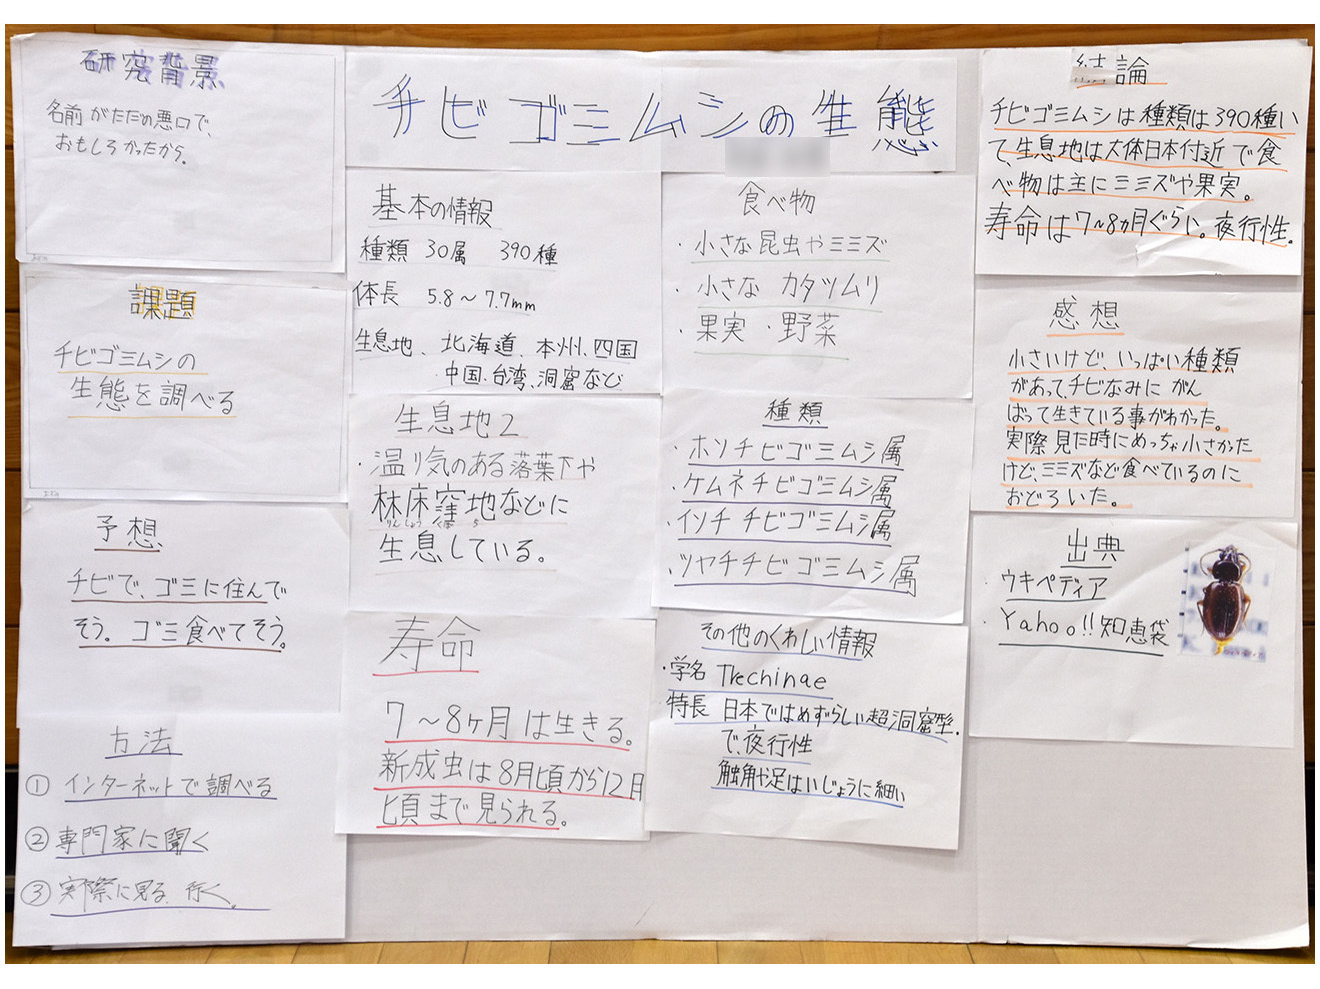 チビゴミムシの生態
研究背景
名前がただの悪口で、
おもしろかったから。
課題
チビゴミムシの
生態を調べる
予想
チビで、ゴミに住んで
そう。ゴミ食べてそう。
方法
① インターネットで調べる
② 専門家に聞く
③ 実際に見る 行く。
基本の情報
種類 30属 390種
体長 5.8〜7.7mm
生息地、北海道、本州、四国
・中国、台湾、洞窟など
生息地2
・湿り気のある落葉下や
林床窪地などに
りんしょう くぼ ち
生息している。
寿命
7〜8ヶ月は生きる。
新成虫は8月頃から12月
頃まで見られる。
食べ物
・小さな昆虫やミミズ
・小さな カタツムリ
・果実・野菜
種類
・ホソチビゴミムシ属
・ケムネチビゴミムシ属
・イソチチビゴミムシ属
・ツヤチチビゴミムシ属
その他のくわしい情報
・学名 Trechinae
特長 日本ではめずらしい超洞窟型。
で、夜行性
触角や足はいじょうに細い
結論
チビゴミムシは種類は390種い
て、生息地は大体日本付近で食
べ物は主にミミズや果実。
寿命は7〜8ヵ月ぐらい。夜行性。
感想
小さいけど、いっぱい種類
があって、チビなみにがん
ばって生きている事がわかった。
実際見た時にめっちゃ小さかった
けど、ミミズなど食べているのに
おどろいた。
出典
・ウキペディア
・Yahoo!!知恵袋